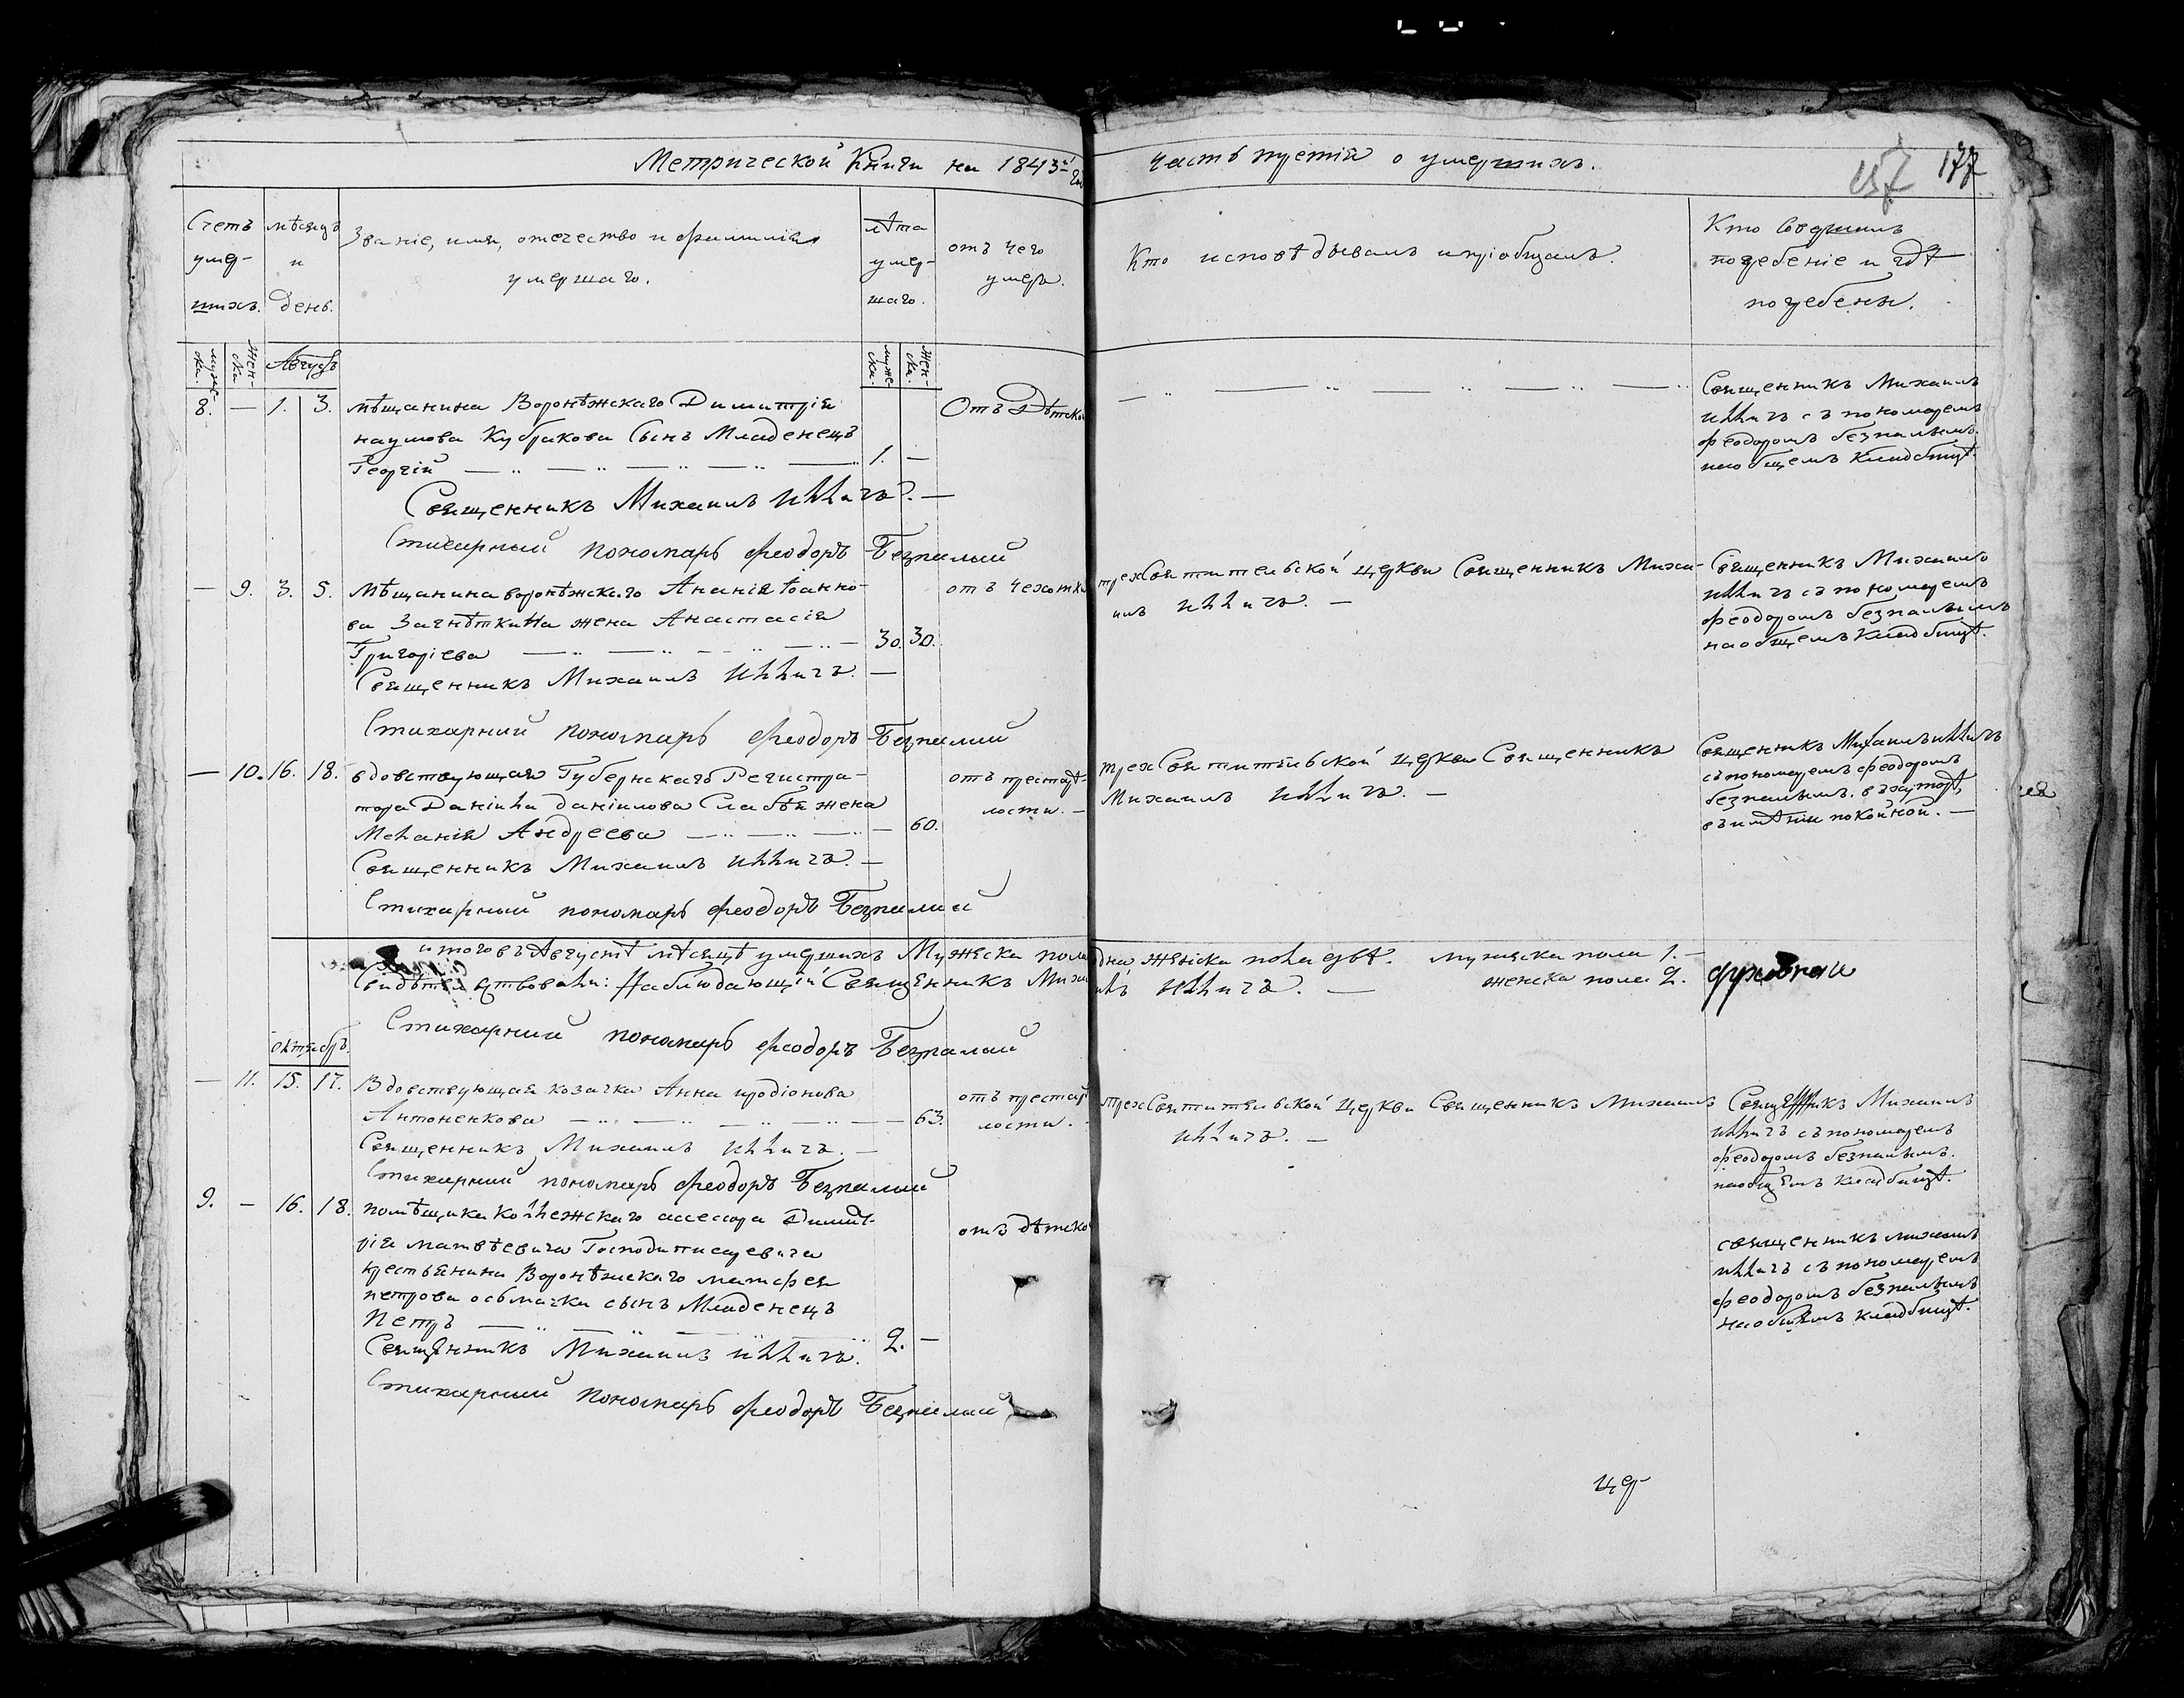 Метрической Книги на 1843й Годъ часть третія о умершихъ.
157 177
Счетъ умер-шихъ.
мѣсяцъ и день.
Званіе, имя, отечество и фамилія умершаго.
лѣта умер-шаго.
отъ чего умеръ.
Кто исповѣдывалъ и пріобщалъ.
Кто Совершилъ погребеніе и гдѣ погребены.
мужес-ка.
Жен-ска
Августъ
муже-ска.
Жен-ска.
8. — 1. 3. мѣщанина Воронѣжскаго Димитрія
наумова Кубракова Сынъ Младенецъ
Георгій 1. —
Отъ Дѣтской
Священникъ Михаилъ
Илличъ съ пономаремъ
феодоромъ безпалымъ.
на общемъ кладбищѣ.
Священникъ Михаилъ Илличъ. —
Стихарный пономарь феодоръ Безпалый
— 9. 3. 5. Мѣщанина воронѣжскаго Ананія Іоанно-
ва Загнѣткина жена Анастасія
Григоріева 30. 30.
отъ чехотки
трехСвятительской церкви Священникъ Миха-
илъ Илличъ. —
Священникъ Михаилъ
Илличъ съ пономаремъ
феодоромъ безпалымъ
на общемъ кладбищѣ.
Священникъ Михаилъ Илличъ. —
Стихарний пономарь феодоръ Безпалий
— 10. 16. 18. вдовствующая Губернскаго Регистра-
тора Даніила данілова Слабѣя жена
Меланія Андреева — 60.
отъ престарѣ-
лости. —
трехСвятительской церкви Священникъ
Михаилъ Илличъ. —
Священникъ Михаилъ Илличъ
съ пономаремъ феодоромъ
безпалымъ. въ хуторѣ,
въ имѣніи покойной. —
Священникъ Михаилъ Илличъ. —
Стихарный пономарь феодоръ Безпалий
итого въ Августѣ мѣсяцѣ умершихъ Мужеска пола одна женска пола двѣ. мужеска пола 1. —
женска пола 2.
Свидѣтельствовали: Наблюдающій Священникъ Михаилъ Илличъ. —
Стихарний пономарь феодоръ Безпалий
октябрь.
— 11. 15. 17. Вдовствующая козачка Анна иродіонова
Антоненкова — 63.
отъ престарѣ
лости. —
трехСвятительской церкви Священникъ Михаилъ
Илличъ. —
Священникъ Михаилъ
Илличъ съ пономаремъ
феодоромъ безпалымъ.
на общемъ кладбищѣ.
Священникъ Михаилъ Илличъ. —
Стихарний пономарь феодоръ Безпалий
9. — 16. 18. помѣщика коллежскаго ассесора Димит-
рія матвѣевича
крестьянина Воронѣжскаго матфея
петрова осьмачка сынъ Младенецъ
Петръ 2. —
отъ дѣтской
священникъ михаилъ
илличъ съ пономаремъ
феодоромъ безпалымъ
на общемъ кладбищѣ.
Священникъ Михаилъ Илличъ.
Стихарний пономарь феодоръ Безпалий